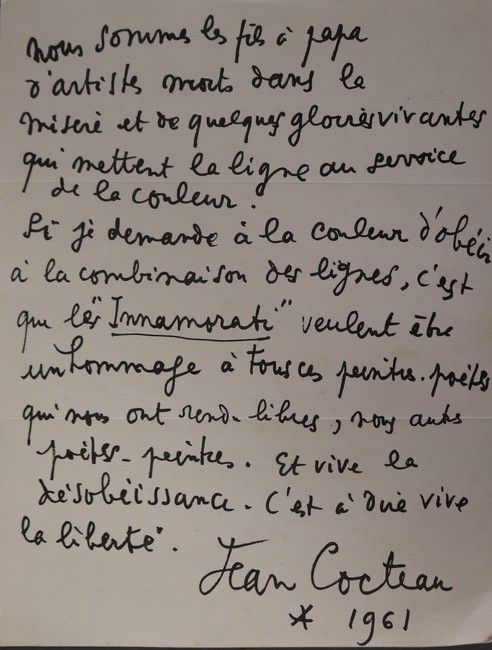 nous sommes les fils à papa
d'artistes morts dans la
misère et de quelques gloires vivantes
qui mettent la ligne au service
de la couleur.
Si je demande à la couleur d'obéir
à la combinaison des lignes, c'est
que les "Innamorati" veulent être
un hommage à tous ces peintres-poètes
qui nous ont rendu libres, nous autres
poètes-peintres. Et vive la
désobéissance. C'est à dire vive
la liberté.
Jean Cocteau
* 1961